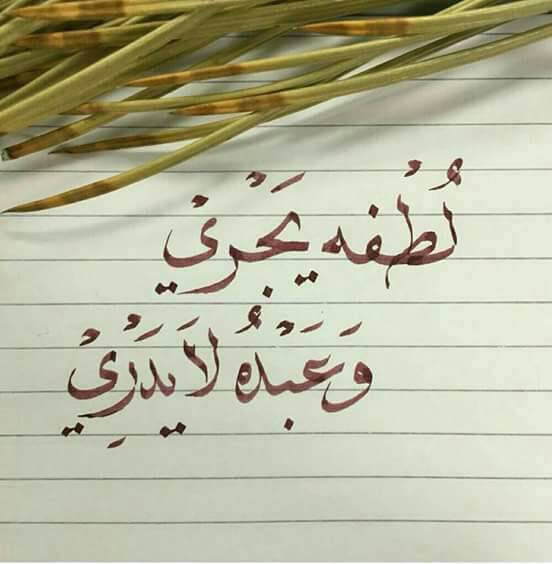 لُطْفه يَجْرِيْ
وَعَبْدُهُ لَا يَدَرِيْ